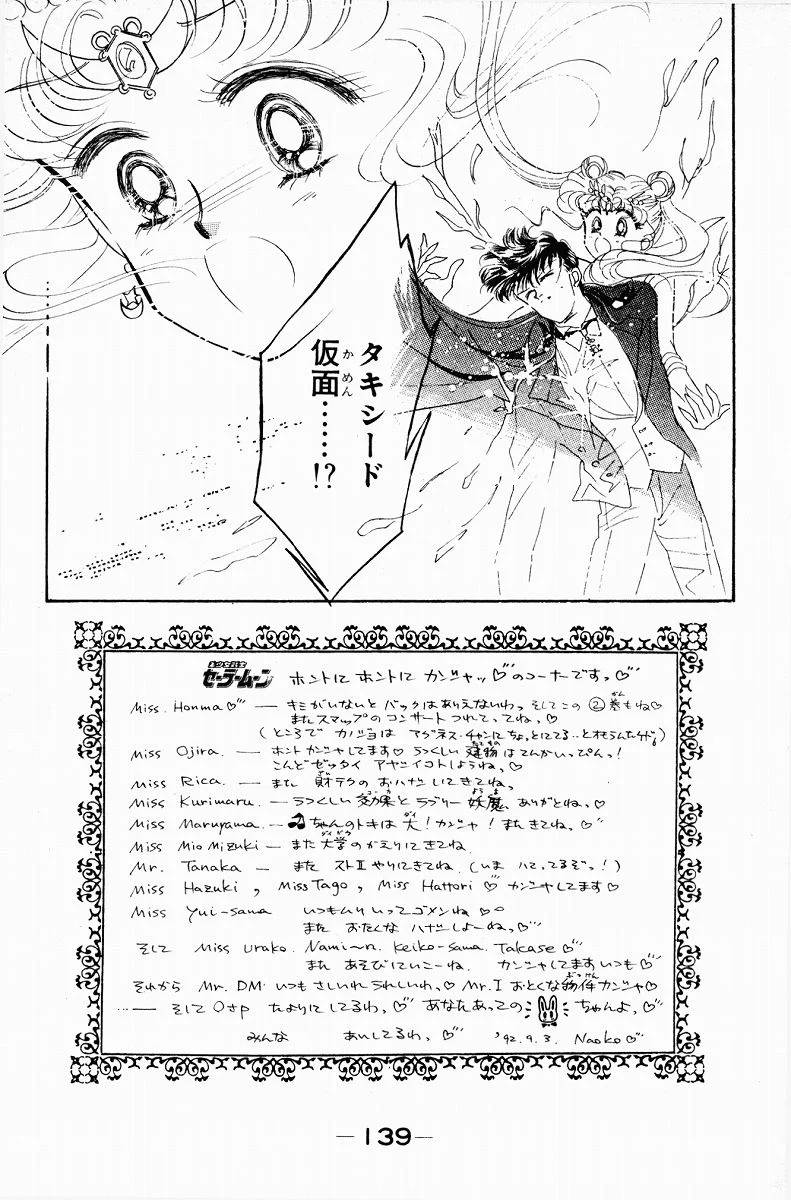 タキシード
仮面……!?
かめん
美少女戦士
セーラームーン ホントに ホントに カンシャッ♡のコーナーですっ♡
Miss. Honma♡ — キミがいないと バックはありえないわっ そしてこの ②巻もね♡
また スマップの コンサート つれてってね、♡
(ところで カノジョは アグネス・チャンに ちょっとにてる…と
Miss Ojira. — ホント カンシャしてます♡ うつくしい 建物は てんかいっぴんっ!
こんど ゼッタイ アヤシイコトしようね、♡
Miss Rica. — また 財テクの おハナシ しにきてね、
Miss Kurimaru. — うつくしい 効果と ラブリー 妖魔、ありがとね、♡
Miss Maruyama. — ちゃんのトキは 大! カンシャ! また きてね、♡
Miss Mio Mizuki — また 大学の かえりに きてね、
Mr. Tanaka — また ストⅡ やりにきてね、(いま ハマってるぞっ!)
Miss Hazuki, Miss Tago, Miss Hattori ♡ カンシャしてます♡
Miss Yui-sama いつも ムリ いって ゴメンね♡
また おたくな ハナシ しよーねっ、♡
そして Miss Urako. Nami〜n. Keiko-sama. Takase♡
また あそびに いこーね、カンシャしてます いつも♡
それから Mr. DM. いつも さしいれ うれしいわ、♡ Mr. I おとくな 物件 カンシャ♡
…— そして Osap たよりに してるわ、♡ あなた あっての ちゃんよ、♡
みんな あいしてるわ、♡ '92. 9. 3. Naoko♡
—139—